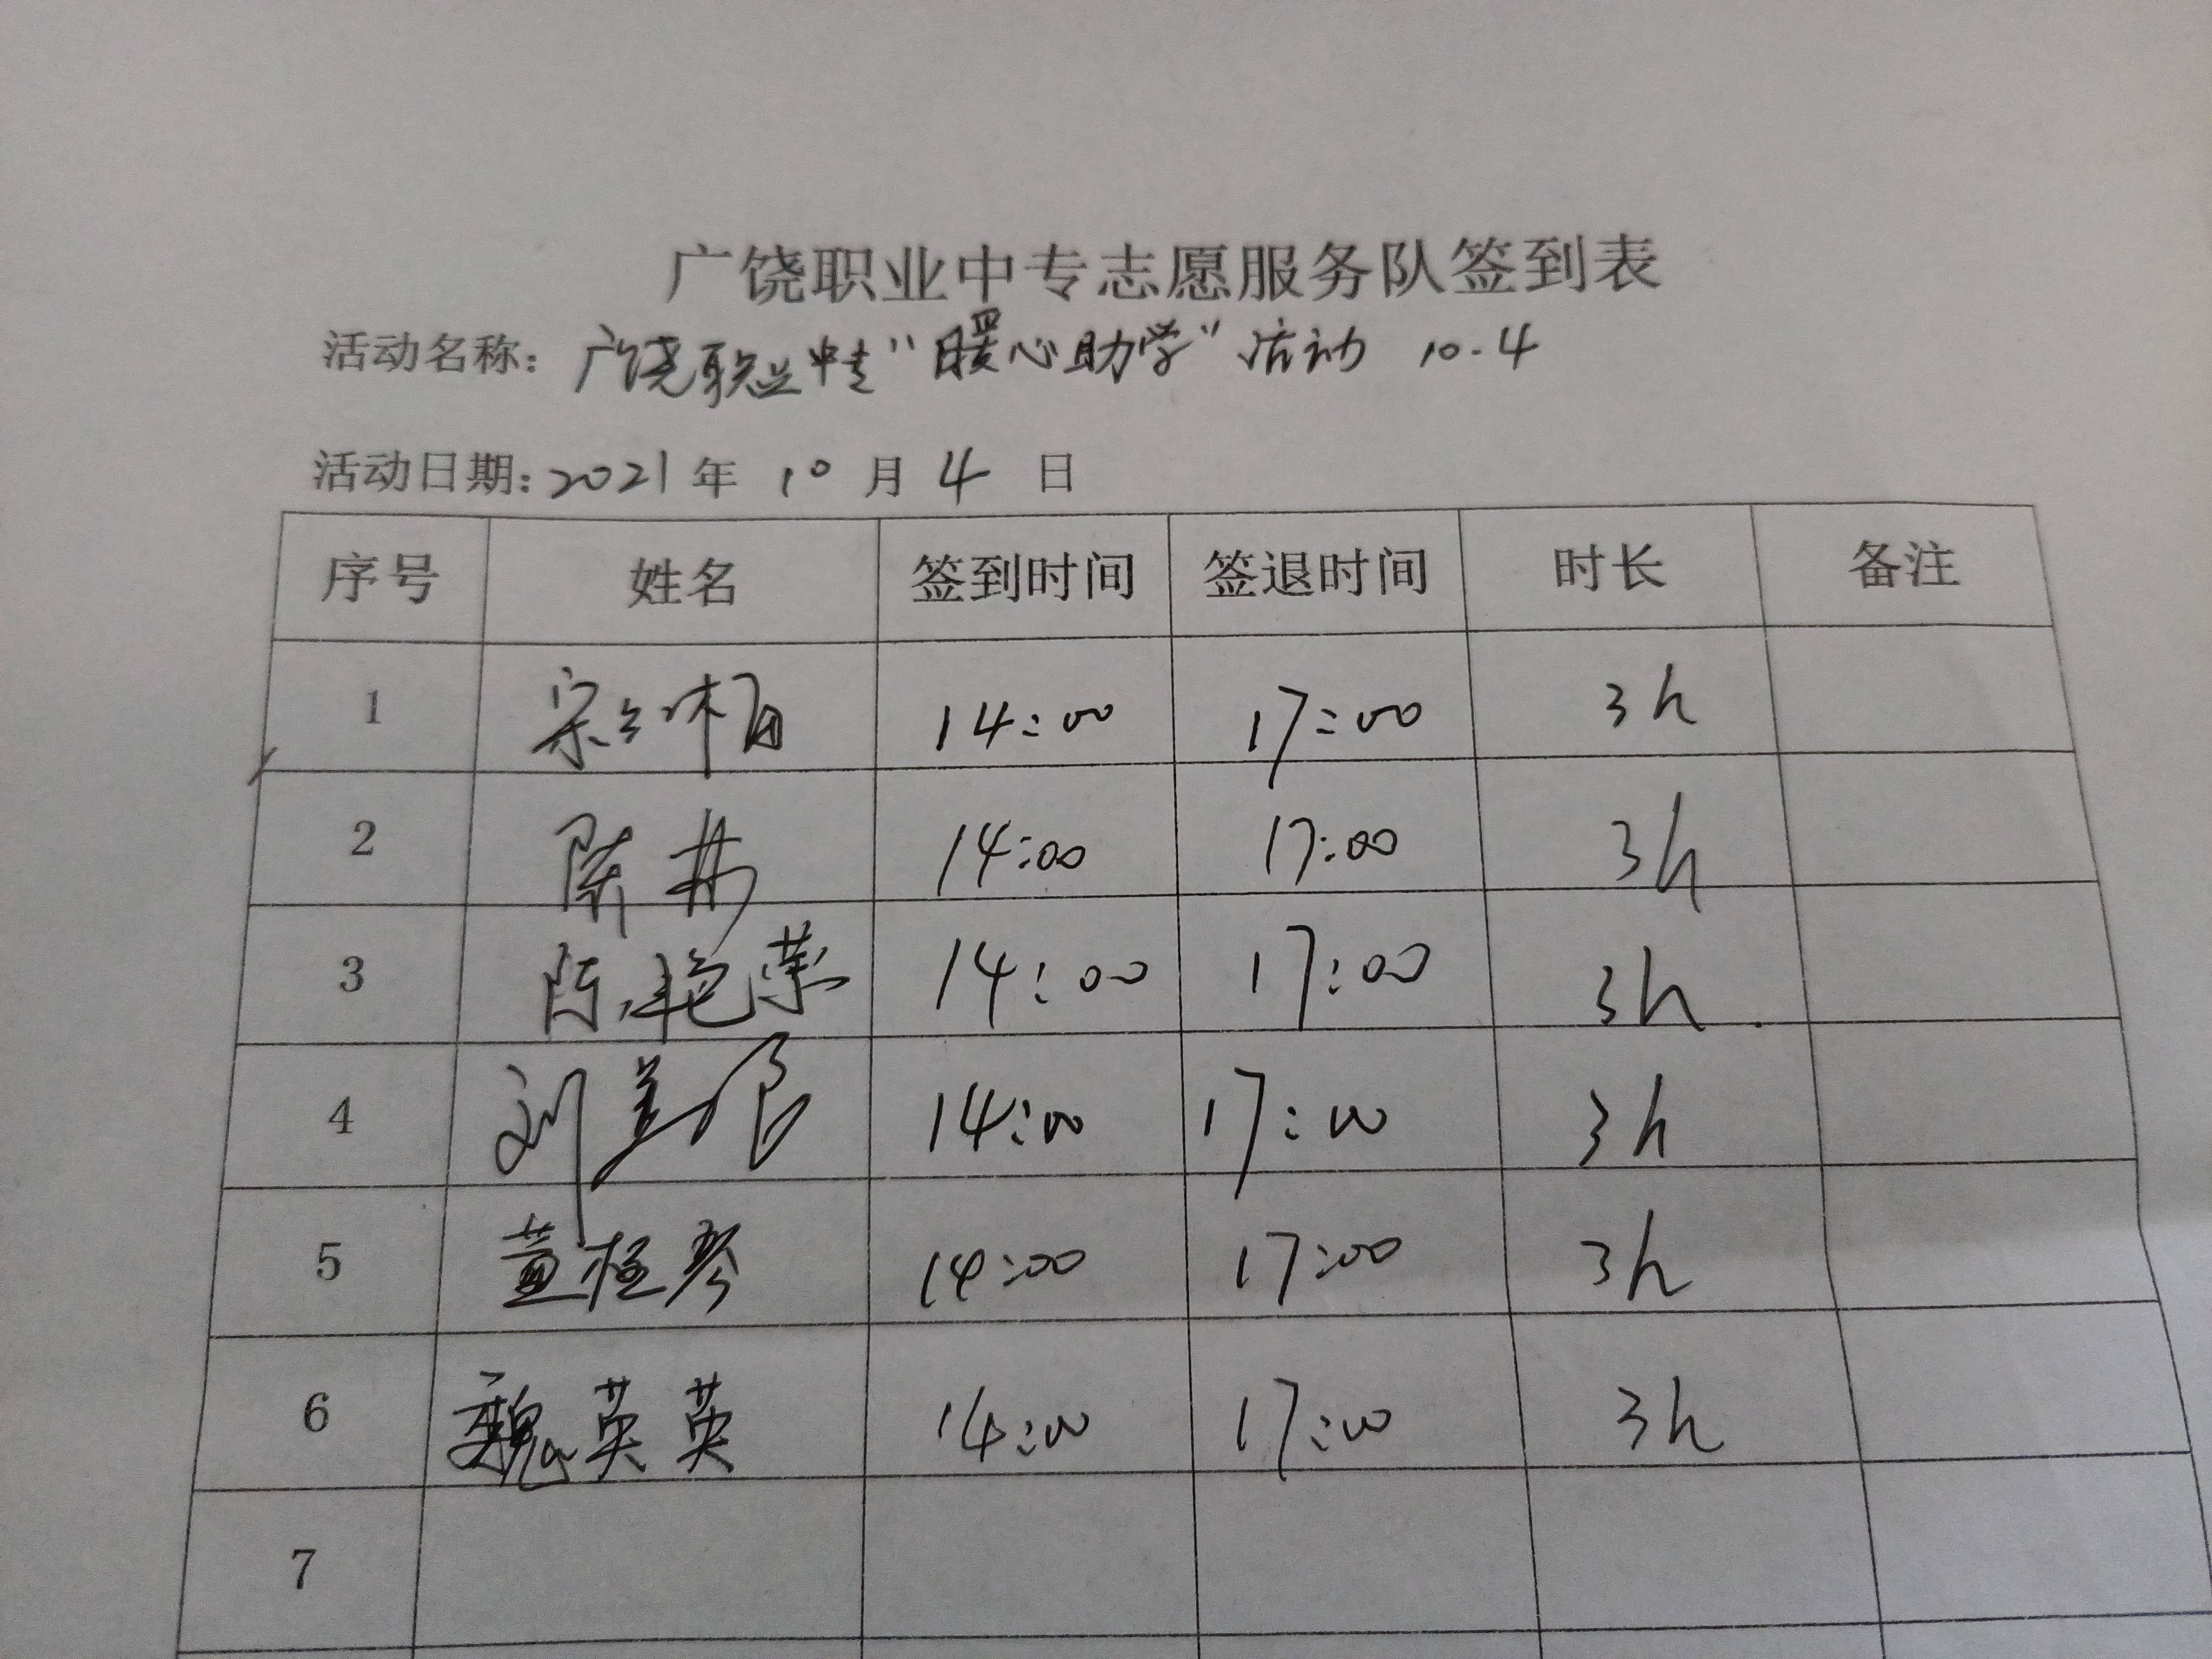 广饶职业中专志愿服务队签到表
活动名称：广饶职业中专“暖心助学”活动 10.4
活动日期：2021年 10 月 4 日
序号 姓名 签到时间 签退时间 时长 备注
1 14:00 17:00 3h
2 陈 14:00 17:00 3h
3 陈艳荣 14:00 17:00 3h
4 刘 14:00 17:00 3h
5 14:00 17:00 3h
6 魏英英 14:00 17:00 3h
7